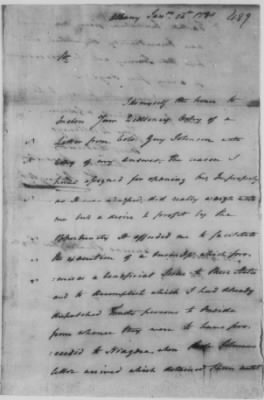 Albany Jany. 15th 1780 489
Sir
I do myself the honor to
Inclose Your Excellency Copy of a
Letter from Colo. Guy Johnson with
Copy of my answer, the reason I
have assigned for opening his
as It was did really weigh with
me but a desire to profit by the
Opportunity It afforded me to facilitate
the execution of a business, which pro
-mises a beneficial Issue to these States
and to Accomplish which I had already
dispatched trusty persons to Oneida
from whence they were to have pro
=ceeded to Niagara when Johnson
letter arrived which detained them until